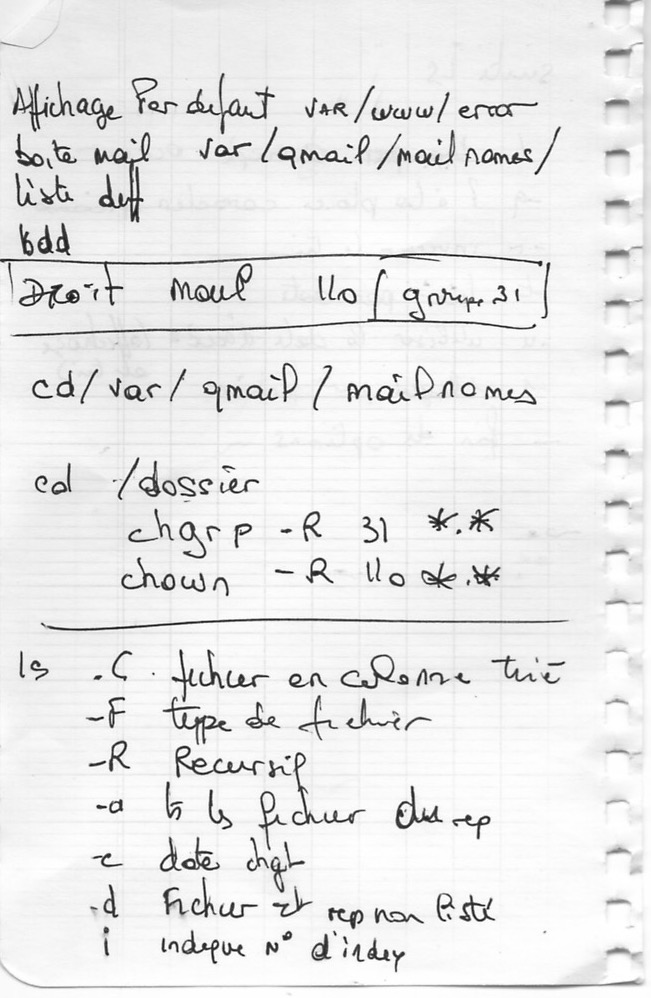 Affichage Par defaut VAR/www/error
boite mail var/qmail/mailnames/
liste deff
bdd
Droit mail 110 / groupe 31
cd/var/qmail/mailnames
cd /dossier
chgrp -R 31 *.*
chown -R 110 *.*
ls -C fichier en colonne trié
-F type de fichier
-R Recursif
-a ts ls fichier du rep
-c date chgt
-d Fichier et rep non listé
i indique N° d'index